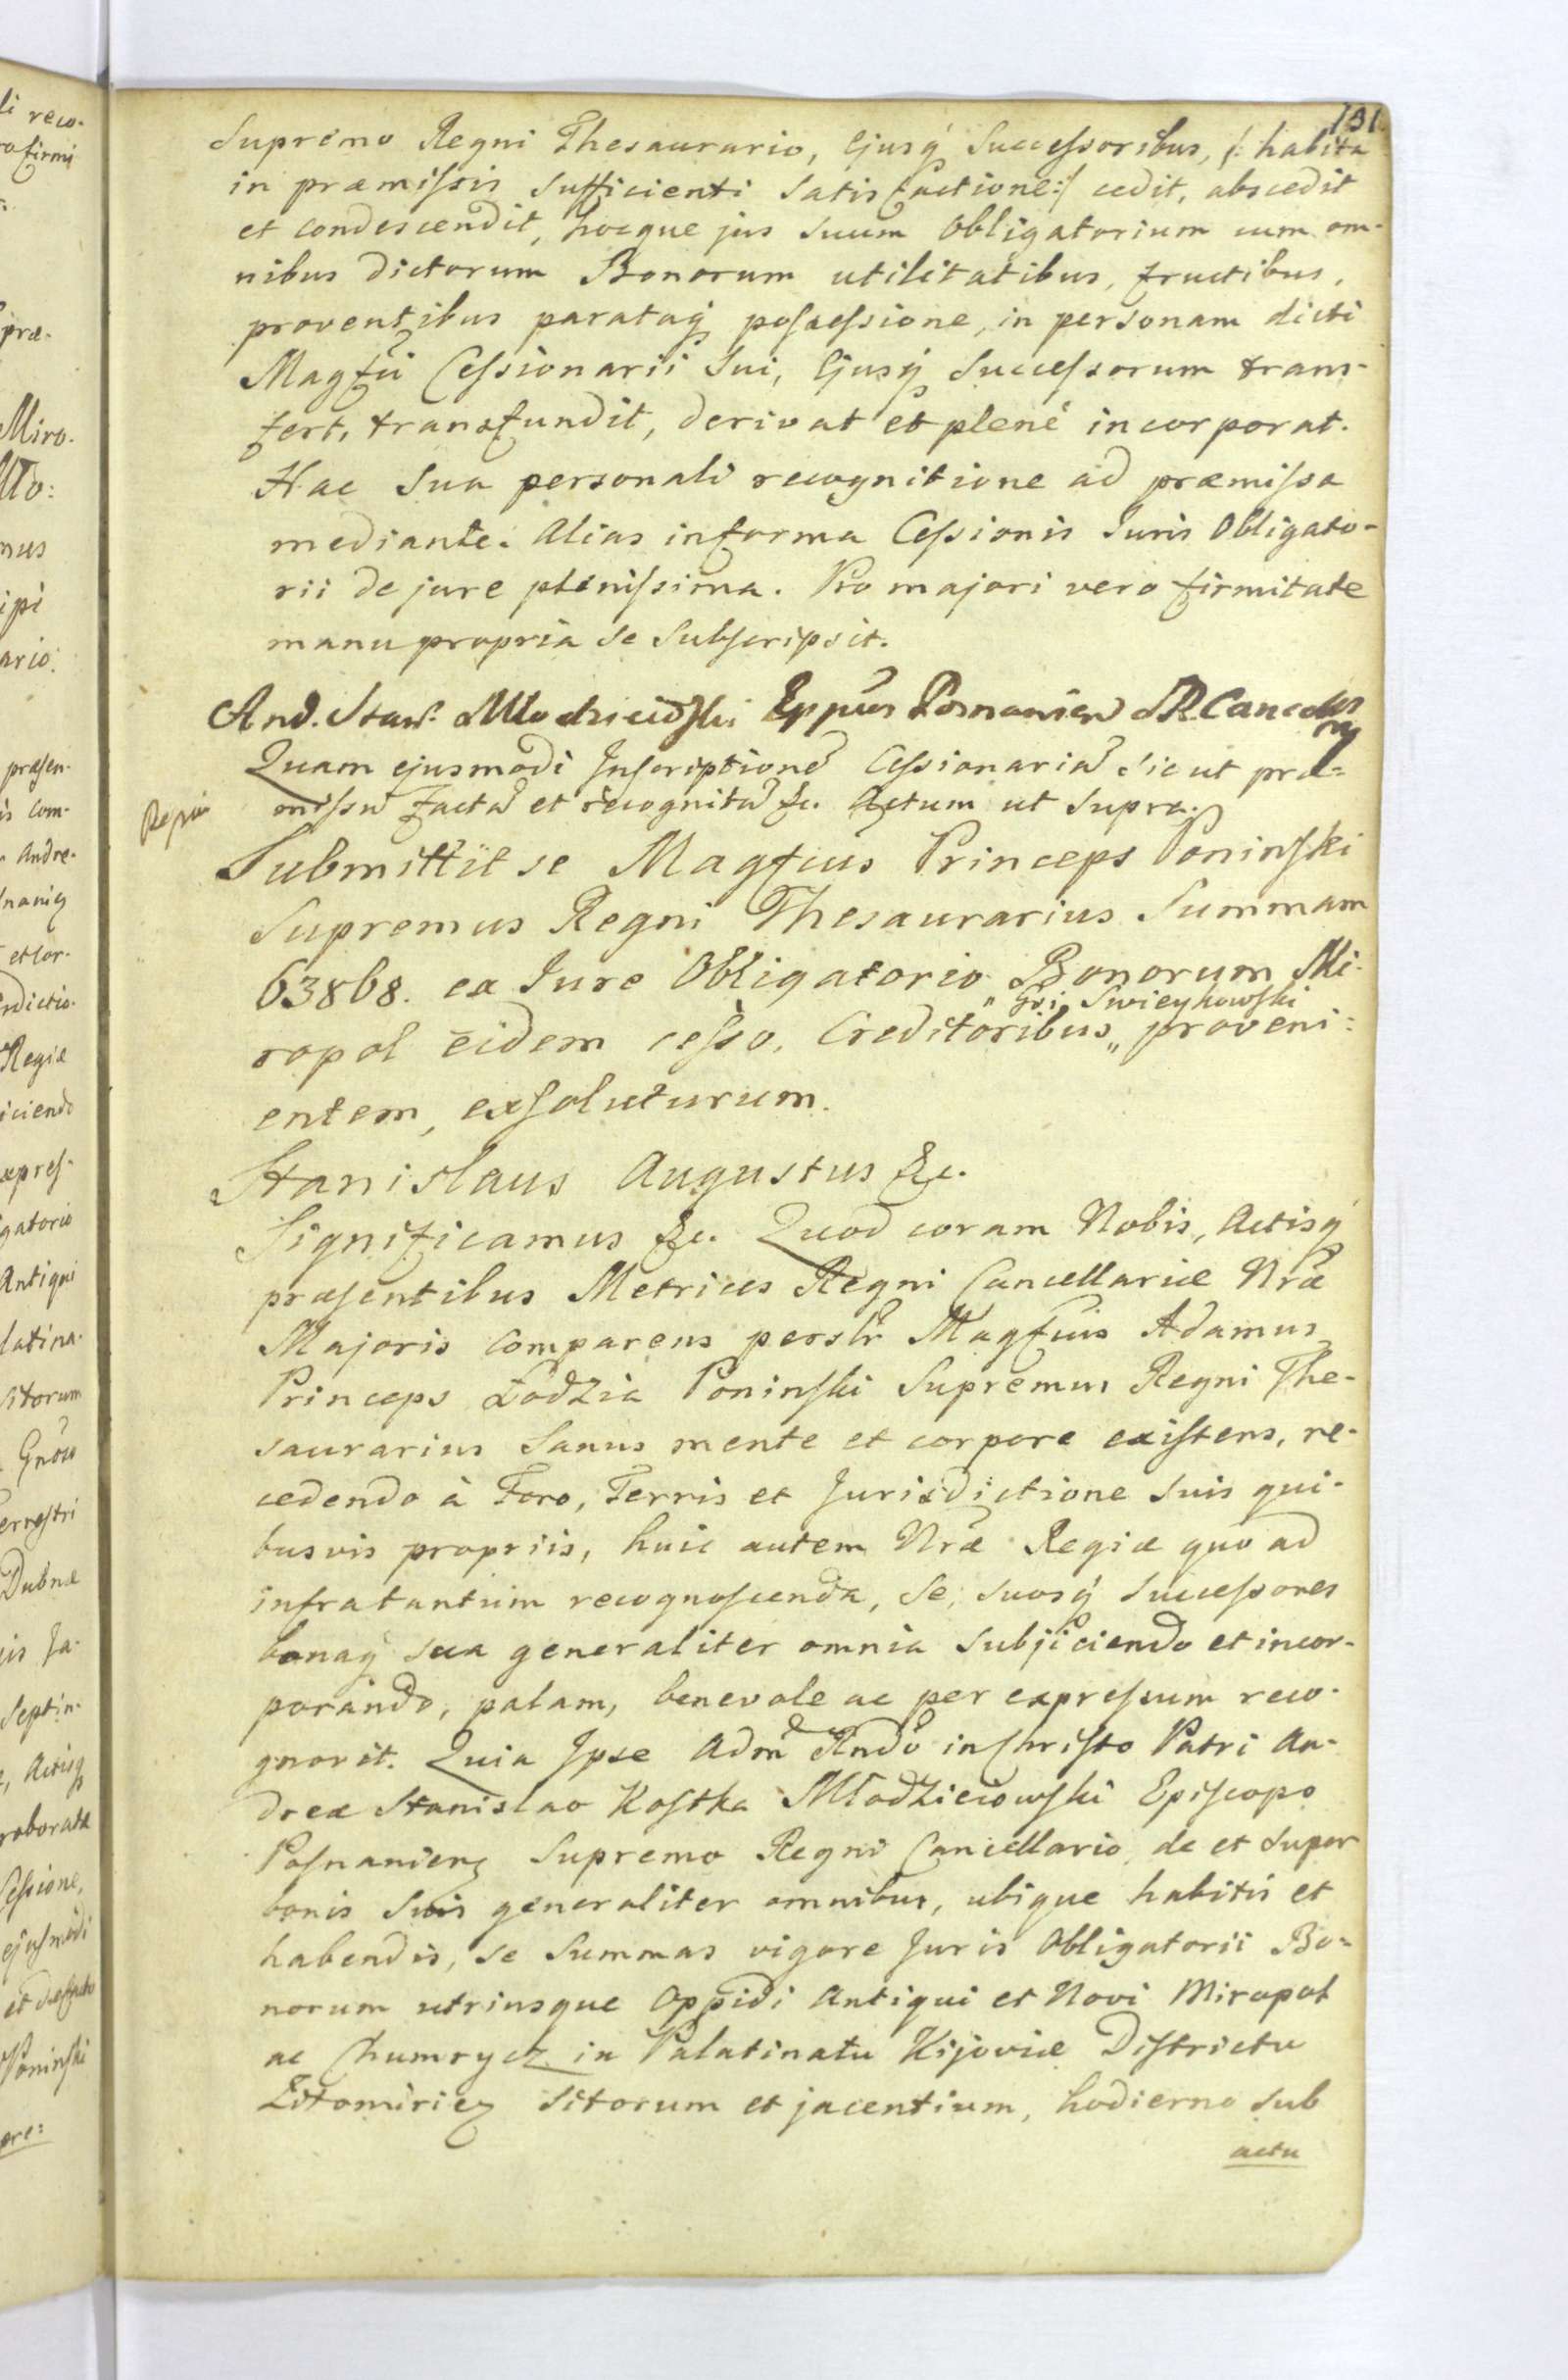 131
Supremo Regni Thesaurario, Ejusq́ Successoribus, /: habita
in præmissis sufficienti satisfactione :/ cedit, abscedit
et condescendit, hocque jus suum Obligatorium cum om-
nibus dictorum Bonorum utilitatibus, fructibus,
proventibus parataq́ possessione, in personam dicti
Magfci Cessionarii sui, Ejusq́ Successorum trans-
fert, transfundit, derivat et plené incorporat.
Hac sua personali recognitione ad præmissa
mediante. Alias in forma Cessionis Juris Obligato-
rii de jure plenissima. Pro majori vero firmitate
manu propria se subscripsit.
And. Staw. Młodzieiowski Eppũs Posnanien S.R. Cancellrs
Quam ejusmodi Inscriptionẽ Cessionariã sic ut præ=
missũ factã et recognitã &c. Actum ut supra.
Submittit se Magfcus Princeps Poninski
Supremus Regni Thesaurarius Summam
63868. ex Jure Obligatorio Bonorum Mi-
ropol eidem cesso, Creditoribus „ Gsi Swieykowski „ proveni=
entem, exsoluturum.
Stanislaus Augustus &c.
Significamus &c. Quod coram Nobis, Actisq́
præsentibus Metrices Regni Cancellariæ Nræ
Majoris comparens perslr Magfcus Adamus
Princeps Łodzia Poninski Supremus Regni The-
saurarius Sanus mente et corpore existens, re-
cedendo à Foro, Terris et Jurisdictione suis qui-
busvis propriis, huic autem Nræ Regiæ quo ad
infratantum recognoscenda, se, suosq́ successores
bonaq́ sua generaliter omnia subjiciendo et incor-
porando, palam, benevole ac per expressum reco-
gnovit. Quia Ipse Adm̃ Rndo in Christo Patri An-
dreæ Stanislao Kostka Młodzieiowski Episcopo
Posnanien Supremo Regni Cancellario, de et super
bonis suis generaliter omnibus, ubique habitis et
habendis, se Summas vigore Juris Obligatorii Bo=
norum utriusque Oppidi Antiqui et Novi Miropol
ac Chumrycz in Palatinatu Kijoviæ Districtu
Zitomirien sitorum et jacentium, hodierno sub
actu